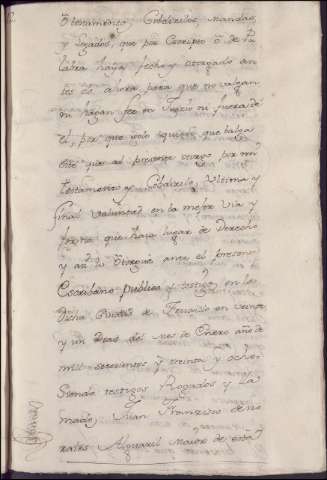 o testamentos, Cobdicilos, mandas,
y legados, que por escripto o de Pa
labra haya fecho y otorgado an
tes de ahora para que no valgan
ni hagan fee en Juicio ni fuera de
el, por que solo quiero que balga
este que al presente otorgo por mi
testamento y Cobdicilo, Ultima y
final Voluntad en la mejor Via y
forma que haia lugar de derecho
y assi lo otorgue ante el presente
Escribano publico y testigos en
Dicho Pueblo de en veinte
y un dias del mes de Enero año de
mil setecientos y treinta y ocho
siendo testigos Rogados y Lla
mados, Juan Francisco de Mo
rales Alguazil Mayor de esta